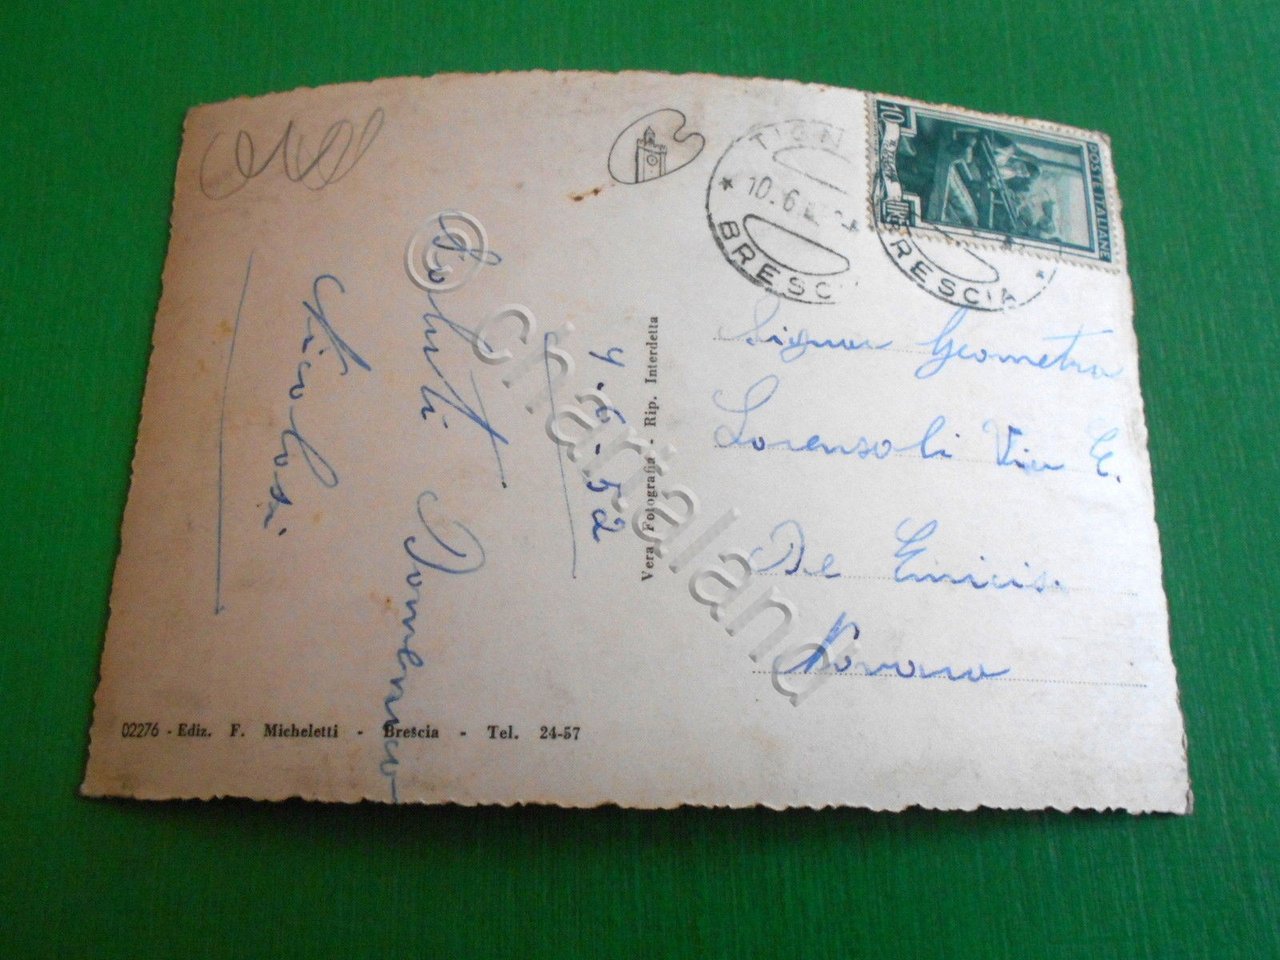 4-6-52
Saluti Domenico
Nicolosi
Vera Fotografia - Rip. Interdetta
02276 - Ediz. F. Micheletti - Brescia - Tel. 24-57
TIGN
10.6
BRESCIA
BRESCIA
10
POSTE ITALIANE
Signor Geometra
Lorensoli Via E.
De Emicis
Novara
© Chartaland